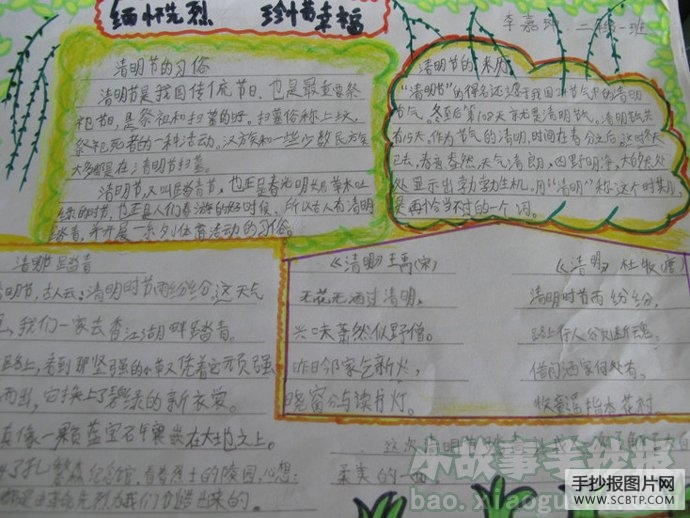 缅怀先烈 珍惜幸福
李嘉 二年级一班
清明节的习俗
清明节是我国传统节日,也是最重要祭
祀节日,是祭祖和扫墓的时。扫墓俗称上坟,
祭祀死者的一种活动。汉方族和一些少数民方族
大多都是在清明节扫墓。
清明节,又叫踏青节,也正是春光明媚草木吐
绿的时节,也正是人们春游的好时候,所以古人有清明
踏青,并开展一系列体育活动的习俗。
清明节的来历
“清明节”的得名还源于我国24节气中的清明
节气。冬至后第108天就是清明节气。清明节气共
有15天。作为节气的清明,时间在春分之后。这时冬天
已去,春意盎然,天气清朗,四野明净,大自然处
处显示出勃勃生机。用“清明”称这个时期,
是再恰当不过的一个词。
清明踏青
明节,古人云:清明时节雨纷纷,这天气
,我们一家去香江湖畔踏青。
路上,看到那坚强的小草又凭着它顽强
而出,它换上了碧绿的新衣裳。
真像一颗蓝宝石牢嵌在大地之上。
纪念馆,看着烈士的陵园,心想:
都是革命先烈为我们创造出来的。
《清明》王禹(宋)
无花无酒过清明,
兴味萧然似野僧。
昨日邻家乞新火,
晓窗分与读书灯。
《清明》杜牧(唐)
清明时节雨纷纷,
路上行人欲断魂。
借问酒家何处有,
牧童遥指杏花村。
这次清明节
柔美的一面
小故事手抄报
bao.xiaogu
手抄报图片网
WWW.SCBTP.COM